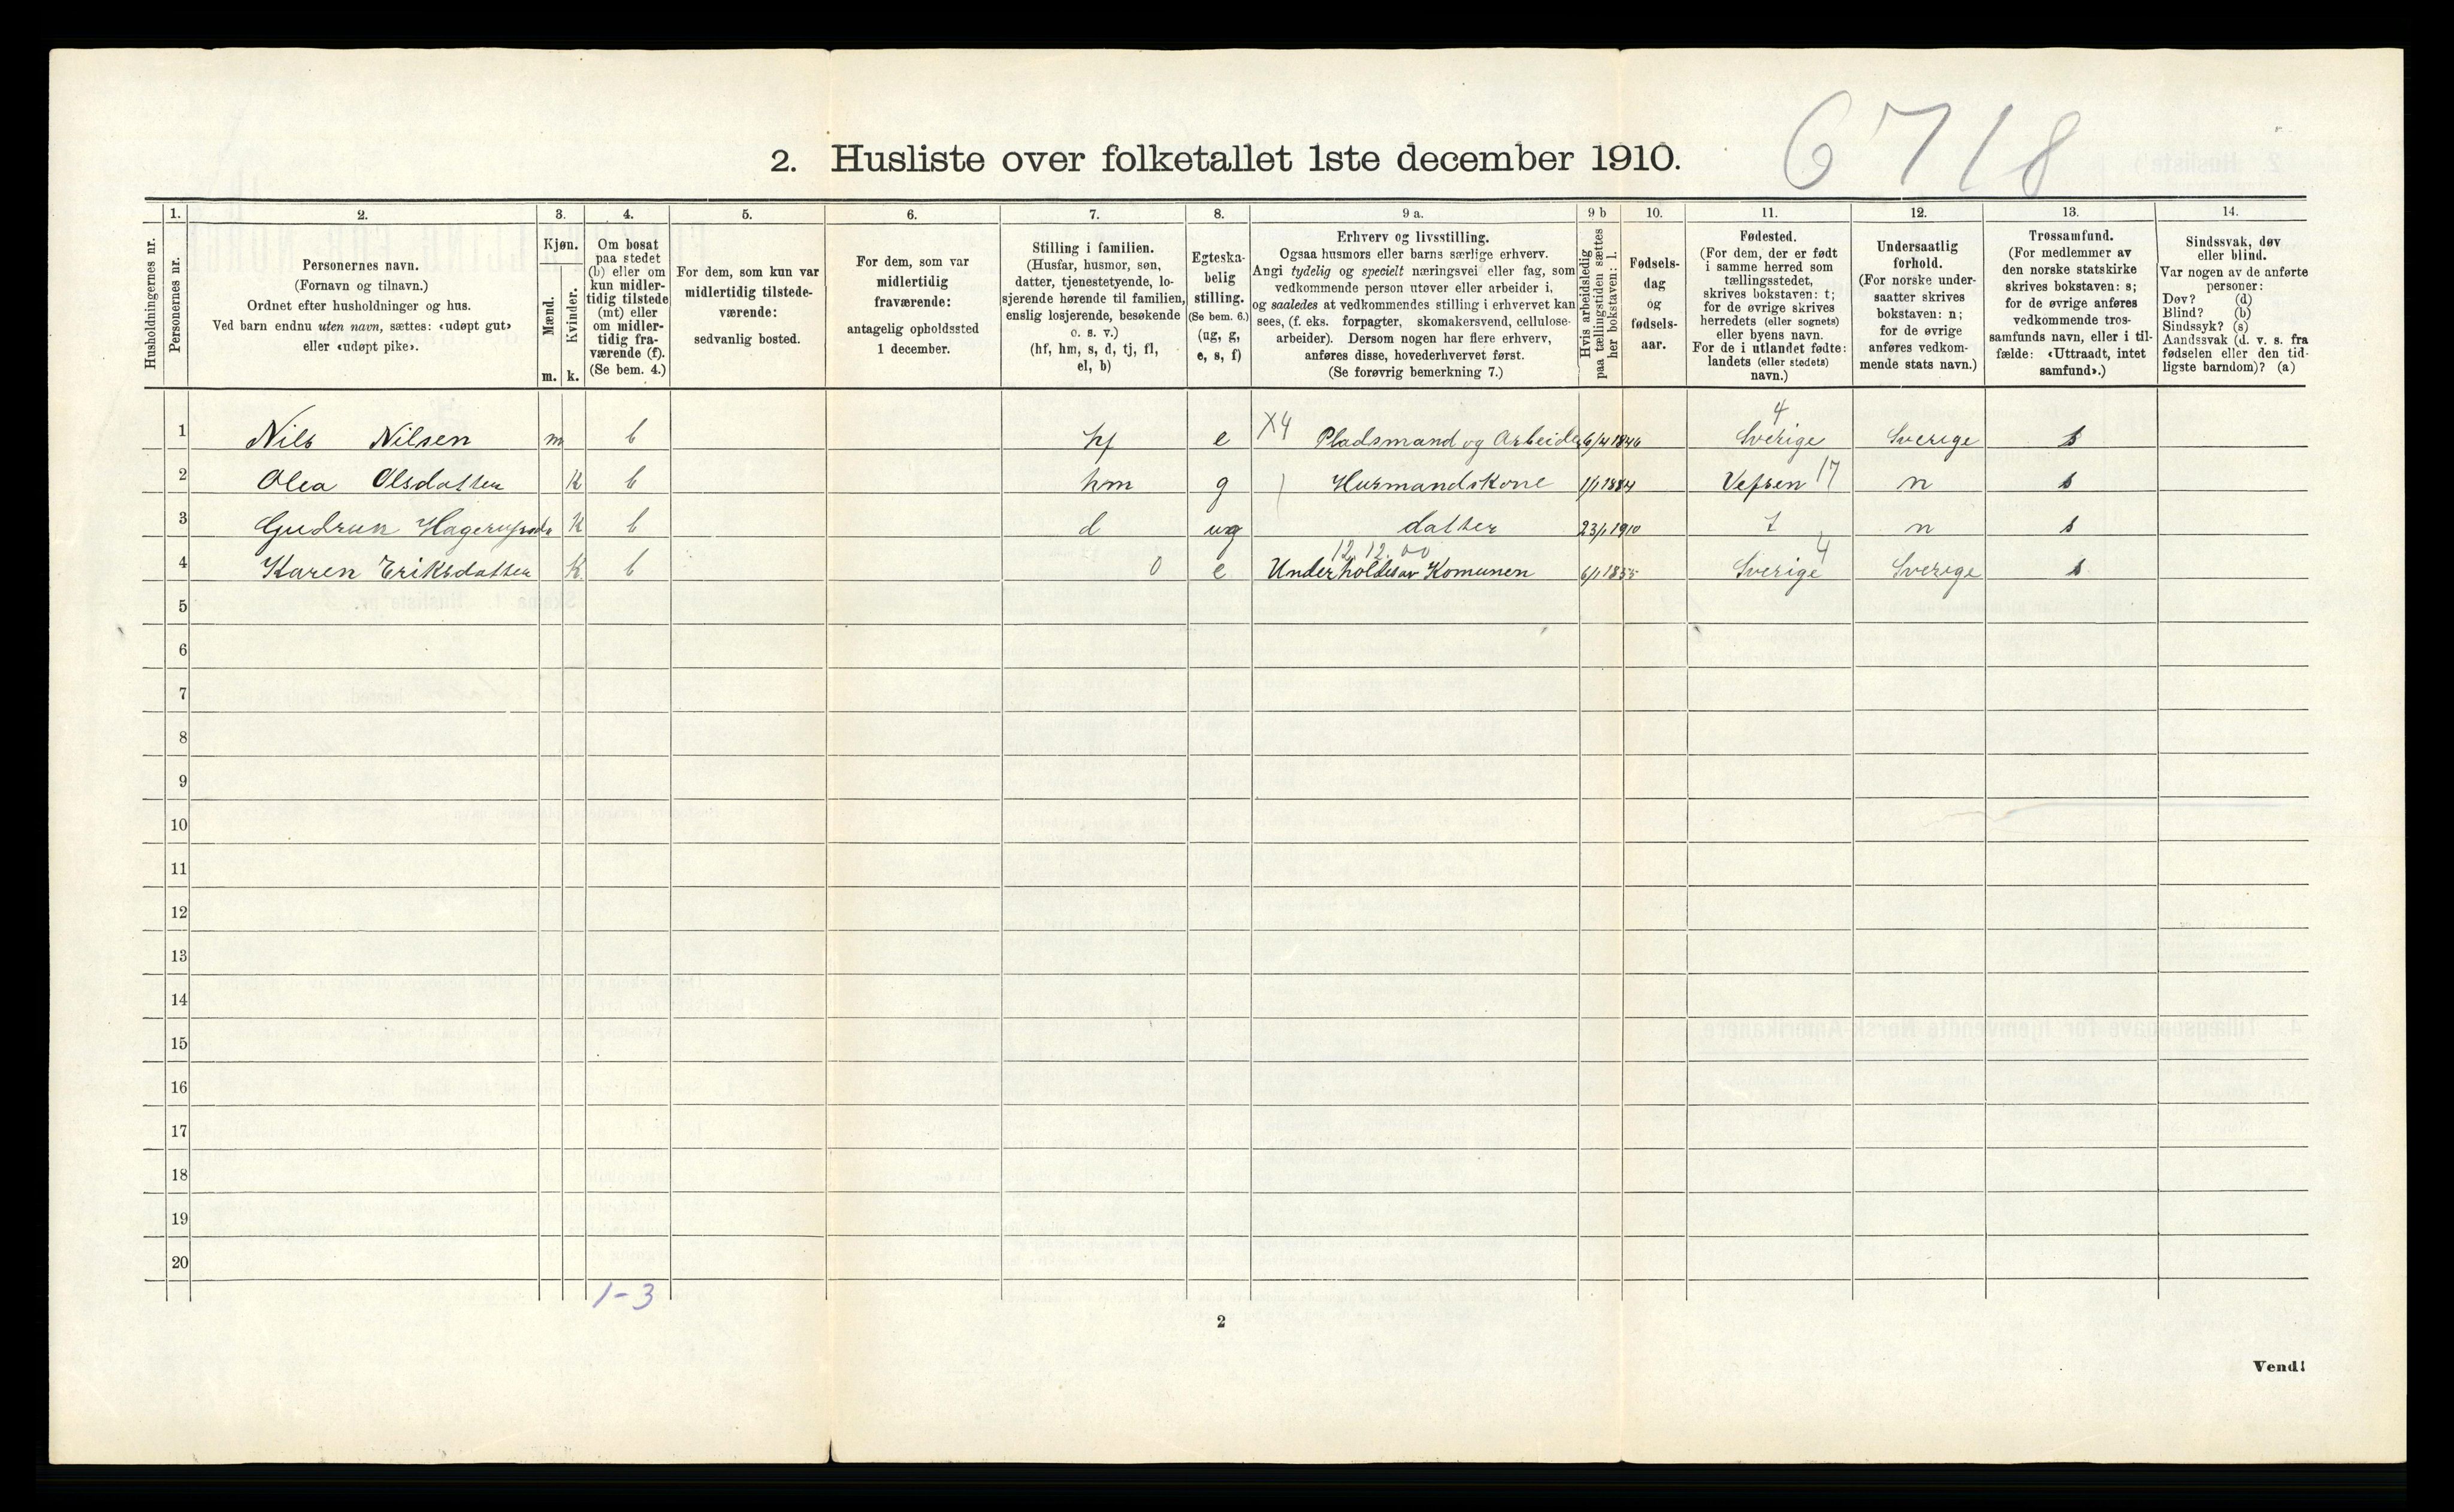 6718
2. Husliste over folketallet 1ste december 1910.
Husholdningernes nr.
1.
Personernes nr.
2.
Personernes navn.
(Fornavn og tilnavn.)
Ordnet efter husholdninger og hus.
Ved barn endnu uten navn, sættes: «udøpt gut»
eller «udøpt pike».
3.
Kjøn.
Mænd.
Kvinder.
m. k.
4.
Om bosat
paa stedet
(b) eller om
kun midler-
tidig tilstede
(mt) eller
om midler-
tidig fra-
værende (f).
(Se bem. 4.)
5.
For dem, som kun var
midlertidig tilstede-
værende:
sedvanlig bosted.
6.
For dem, som var
midlertidig
fraværende:
antagelig opholdssted
1 december.
7.
Stilling i familien.
(Husfar, husmor, søn,
datter, tjenestetyende, lo-
sjerende hørende til familien,
enslig losjerende, besøkende
o. s. v.)
(hf, hm, s, d, tj, fl,
el, b)
8.
Egteska-
belig
stilling.
(Se bem. 6.)
(ug, g,
e, s, f)
9 a.
Erhverv og livsstilling.
Ogsaa husmors eller barns særlige erhverv.
Angi tydelig og specielt næringsvei eller fag, som
vedkommende person utøver eller arbeider i,
og saaledes at vedkommendes stilling i erhvervet kan
sees, (f. eks. forpagter, skomakersvend, cellulose-
arbeider). Dersom nogen har flere erhverv,
anføres disse, hovederhvervet først.
(Se forøvrig bemerkning 7.)
9 b
Hvis arbeidsledig
paa tællingstiden sættes
her bokstaven: l.
10.
Fødsels-
dag
og
fødsels-
aar.
11.
Fødested.
(For dem, der er født
i samme herred som
tællingsstedet,
skrives bokstaven: t;
for de øvrige skrives
herredets (eller sognets)
eller byens navn.
For de i utlandet fødte:
landets (eller stedets)
navn.)
12.
Undersaatlig
forhold.
(For norske under-
saatter skrives
bokstaven: n;
for de øvrige
anføres vedkom-
mende stats navn.)
13.
Trossamfund.
(For medlemmer av
den norske statskirke
skrives bokstaven: s;
for de øvrige anføres
vedkommende tros-
samfunds navn, eller i til-
fælde: «Uttraadt, intet
samfund».)
14.
Sindssvak, døv
eller blind.
Var nogen av de anførte
personer:
Døv? (d)
Blind? (b)
Sindssyk? (s)
Aandssvak (d. v. s. fra
fødselen eller den tid-
ligste barndom)? (a)
1 Nils Nilsen m b hf e X4 Pladsmand og Arbeider 6/4 1846 4 Sverige Sverige s
2 Olea Olsdatter K b hm g Husmandskone 1/1 1884 Vefsen 17 n s
3 Gudrun K b d ug datter 23/1 1910 t n s
4 Karen Eriksdatter K b 0 e 12.12.00 Underholdes av Komunen 6/1 1855 Sverige 4 Sverige s
5
6
7
8
9
10
11
12
13
14
15
16
17
18
19
20
1-3
2
Vend!